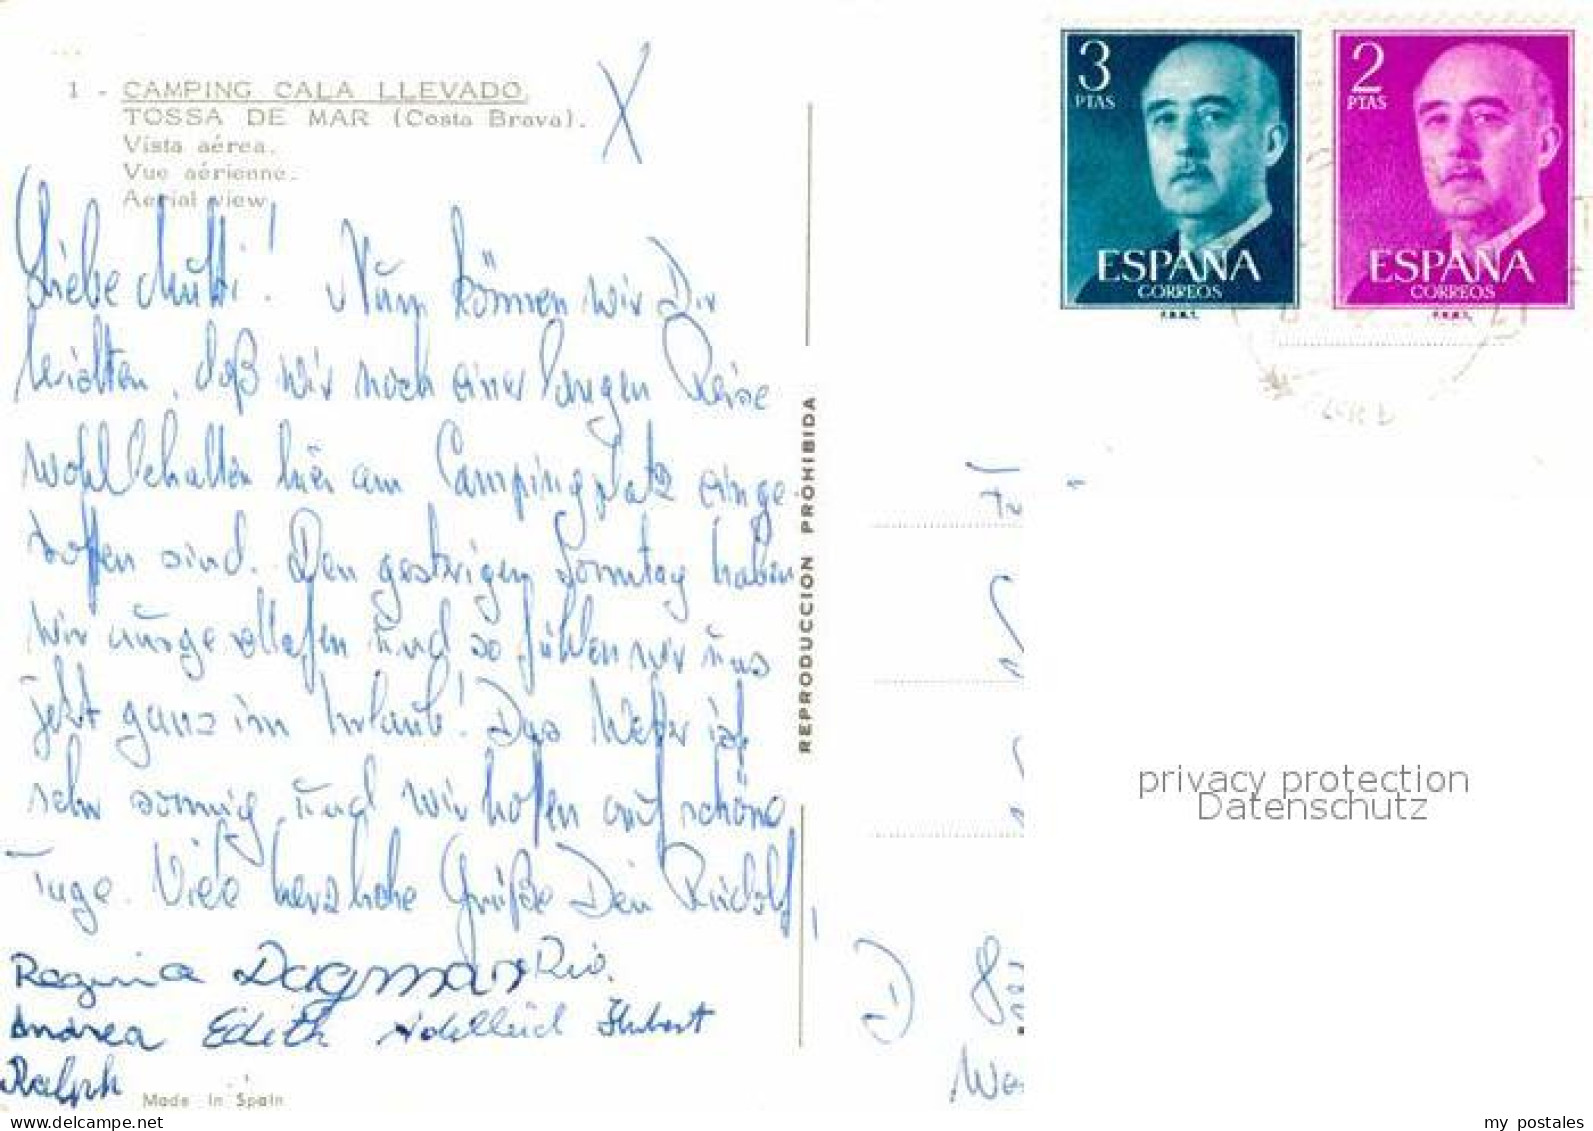 1 - CAMPING CALA LLEVADO
TOSSA DE MAR (Costa Brava).
Vista aérea.
Vue aérienne.
Aerial view
Liebe Mutti! Nun können wir Dir
berichten, daß wir nach einer langen Reise
wohlbehalten hier am Campingplatz einge-
troffen sind. Den gestrigen Sonntag haben
wir ausgeschlafen und so fühlen wir uns
jetzt ganz im Urlaub! Das Wetter ist
sehr sonnig und wir hoffen auf schöne
Tage. Viele herzliche Grüße Dein Rudolf,
Regina Dagmar Ria.
Andrea Edith Adelheid Hubert
Ralph
Made in Spain
REPRODUCCION PROHIBIDA
3
PTAS
ESPAÑA
CORREOS
F.N.M.T.
2
PTAS
ESPAÑA
CORREOS
F.N.M.T.
privacy protection
Datenschutz
my postales